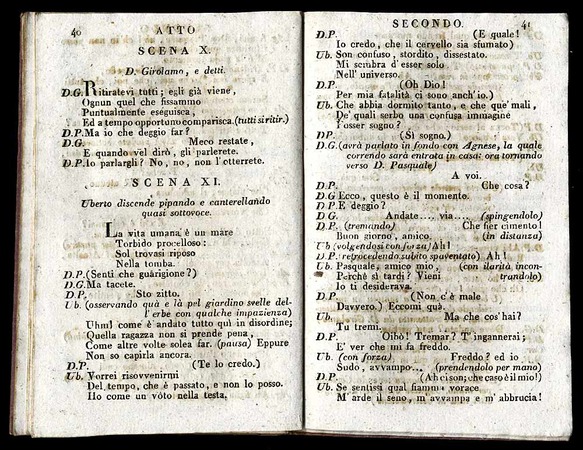 40 ATTO
SCENA X.
D. Girolamo, e detti.
D.G. Ritiratevi tutti; egli già viene,
Ognun quel che fissammo
Puntualmente eseguisca,
Ed a tempo opportuno comparisca. (tutti si ritir.)
D.P. Ma io che deggio far?
D.G. Meco restate,
E quando vel dirò, gli parlerete.
D.P. Io parlargli? No, no, non l'otterrete.
SCENA XI.
Uberto discende pipando e canterellando
quasi sottovoce.
La vita umana è un mare
Torbido procelloso:
Sol trovasi riposo
Nella tomba.
D.P. (Senti che guarigione?)
D.G. Ma tacete.
D.P. Sto zitto.
Ub. (osservando quà e là pel giardino svelle del-
l'erbe con qualche impazienza)
Uhm! come è andato tutto quì in disordine;
Quella ragazza non si prende pena,
Come altre volte solea far. (pausa) Eppure
Non so capirla ancora.
D.P. (Te lo credo.)
Ub. Vorrei risovvenirmi
Del tempo, che è passato, e non lo posso.
Ho come un vòto nella testa.
SECONDO. 41
D.P. (E quale!
Io credo, che il cervello sia sfumato)
Ub. Son confuso, stordito, dissestato.
Mi sembra d'esser solo
Nell' universo.
D.P. (Oh Dio!
Per mia fatalità ci sono anch'io.)
Ub. Che abbia dormito tanto, e che que' mali,
De' quali serbo una confusa immagine
Fosser sogno?
D.P. (Sì sogno.)
D.G. (avrà parlato in fondo con Agnese, la quale
correndo sarà entrata in casa: ora tornando
verso D. Pasquale)
A voi.
D.P. Che cosa?
D.G. Ecco, questo è il momento.
D.P. E deggio?
D.G. Andate.... via.... (spingendolo)
D.P. (tremando) Che fier cimento!
Buon giorno, amico. (in distanza)
Ub. (volgendosi con forza) Ah!
D.P. (retrocedendo subito spaventato) Ah!
Ub. Pasquale, amico mio, (con ilarità incon-
Perchè sì tardi? Vieni trandolo)
Io ti desiderava.
D.P. (Non c'è male
Davvero.) Eccomi quà.
Ub. Ma che cos'hai?
Tu tremi.
D.P. Oibò! Tremar? T'ingannerai;
E' ver che mi fa freddo.
Ub. (con forza) Freddo? ed io
Sudo, avvampo... (prendendolo per mano)
D.P. (Ah ci son; che caso è il mio!)
Ub. Se sentissi qual fiamma vorace
M'arde il seno, m'avvampa e m'abbrucia!